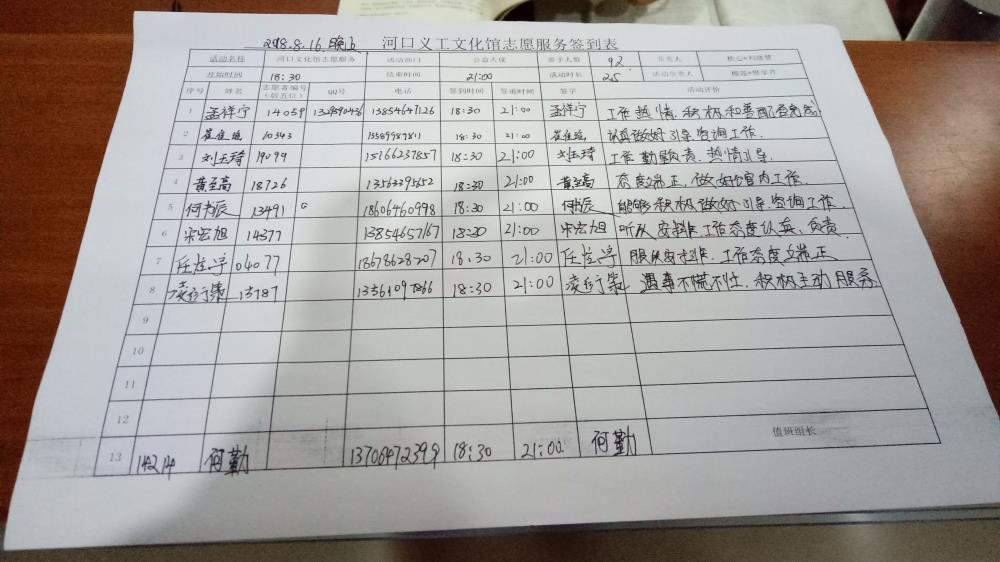 2018.8.16.晚上 河口义工文化馆志愿服务签到表
活动名称 河口文化馆志愿服务 活动部门 公益天使 参予人数 92 负责人
开始时间 18:30 结束时间 21:00 活动时长 2.5 活动负责人
序号 姓名 志愿者编号（后五位） QQ号 电话 签到时间 签退时间 签字 活动评价
1 孟祥宁 14059 13854647126 18:30 21:00 孟祥宁 工作热情,积极和善
2 崔佳瑶 18:30 21:00 崔佳瑶 认真做好引导咨询工作.
3 刘玉琦 19099 15166237857 18:30 21:00 刘玉琦 工作勤勤负责.热情引导.
4 黄至高 18726 13563395652 18:30 21:00 黄至高 态度端正,做好馆内工作.
5 何书辰 13491 18606460998 18:30 21:00 何书辰 能够积极做好引导咨询工作.
6 宋宏旭 14377 13854657167 18:30 21:00 宋宏旭 听从安排,工作态度认真,负责.
7 04077 18678628207 18:30 21:00 服从安排.工作态度端正
8 凌衍策 15187 18:30 21:00 凌衍策 遇事不慌不忙.积极主动服务
9
10
11
12
13 14214 何勤 13706472399 18:30 21:00 何勤 值班组长